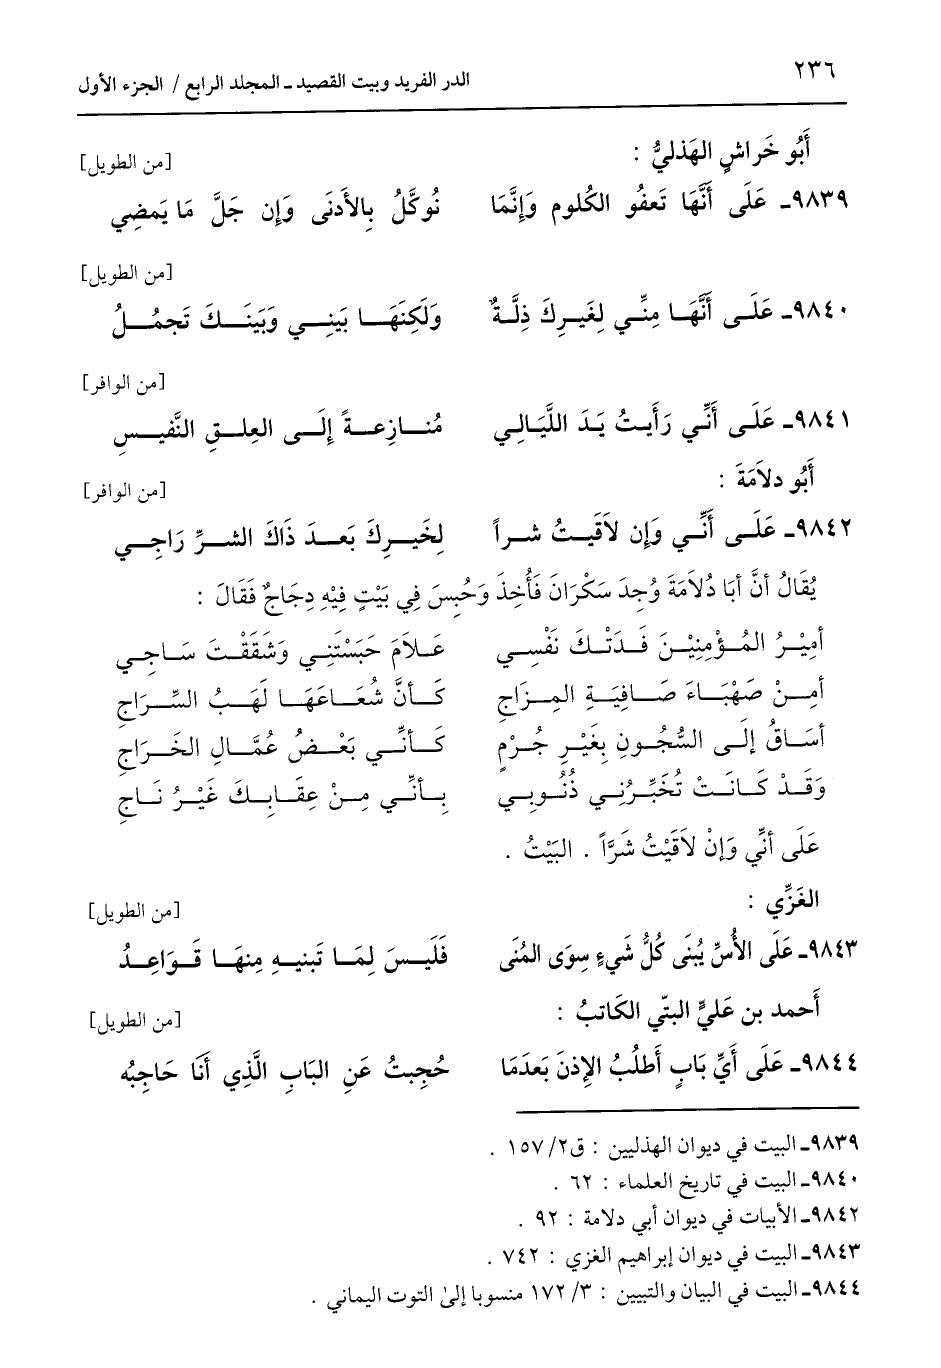 ٢٣٦
الدر الفريد وبيت القصيد ـ المجلد الرابع / الجزء الأول
أَبُو خَراشٍ الهَذليُّ :
[من الطويل]
٩٨٣٩ـ عَلَى أَنَّهَا تَعفُو الكُلوم وَإِنَّمَا نُوكَّلُ بِالأَدنَى وَإِن جَلَّ مَا يَمضِي
[من الطويل]
٩٨٤٠ـ عَلَى أَنَّهَا مِنِّي لِغَيرِكَ ذِلَّةٌ وَلَكِنَهَا بَينِي وَبَينَكَ تَجمُلُ
[من الوافر]
٩٨٤١ـ عَلَى أَنِّي رَأَيتُ يَدَ اللَّيَالِي مُنَازِعةً إِلَى العِلقِ النَّفيسِ
أَبُو دلاَمَةَ :
[من الوافر]
٩٨٤٢ـ عَلَى أَنِّي وَإِن لاَقَيتُ شراً لِخَيرِكَ بَعدَ ذَاكَ الشرِّ رَاجِي
يُقَالُ أنَّ أبَا دُلاَمَةَ وُجِدَ سَكْرَانَ فَأُخِذَ وَحُبِسَ فِي بَيْتٍ فِيْهِ دِجَاجٌ فَقَالَ :
أمِيْرُ المُؤْمِنِيْنَ فَدَتْكَ نَفْسِي عَلاَمَ حَبَسْتَنِي وَشَقَقْتَ سَاجِي
أمِنْ صَهْبَاءَ صَافِيَةِ المِزَاجِ كَأنَّ شُعَاعَهَا لَهَبُ السِّرَاجِ
أسَاقُ إلَى السُّجُونِ بِغَيْرِ جُرْمٍ كَأنِّي بَعْضُ عُمَّالِ الخَرَاجِ
وَقَدْ كَانَتْ تُخَبِّرُنِي ذُنُوبِي بِأنِّي مِنْ عِقَابِكَ غَيْرُ نَاجِ
عَلَى أنِّي وَإنْ لاَقَيْتُ شَرَّاً . البَيْتُ .
الغَزِّي :
[من الطويل]
٩٨٤٣ـ عَلَى الأُسِّ يُبنَى كُلُّ شَيءٍ سِوَى المُنَى فَلَيسَ لِمَا تَبنيهِ مِنهَا قَوَاعِدُ
أَحمد بن عَليٍّ البتّي الكَاتبُ :
[من الطويل]
٩٨٤٤ـ عَلَى أَيِّ بَابٍ أَطلُبُ الإِذنَ بَعدَمَا حُجِبتُ عَنِ البَابِ الَّذِي أنَا حَاجِبُه
٩٨٣٩ـ البيت في ديوان الهذليين : ق٢/١٥٧ .
٩٨٤٠ـ البيت في تاريخ العلماء : ٦٢ .
٩٨٤٢ـ الأبيات في ديوان أبي دلامة : ٩٢ .
٩٨٤٣ـ البيت في ديوان إبراهيم الغزي : ٧٤٢ .
٩٨٤٤ـ البيت في البيان والتبيين : ٣/ ١٧٢ منسوبا إلىٰ التوت اليماني .